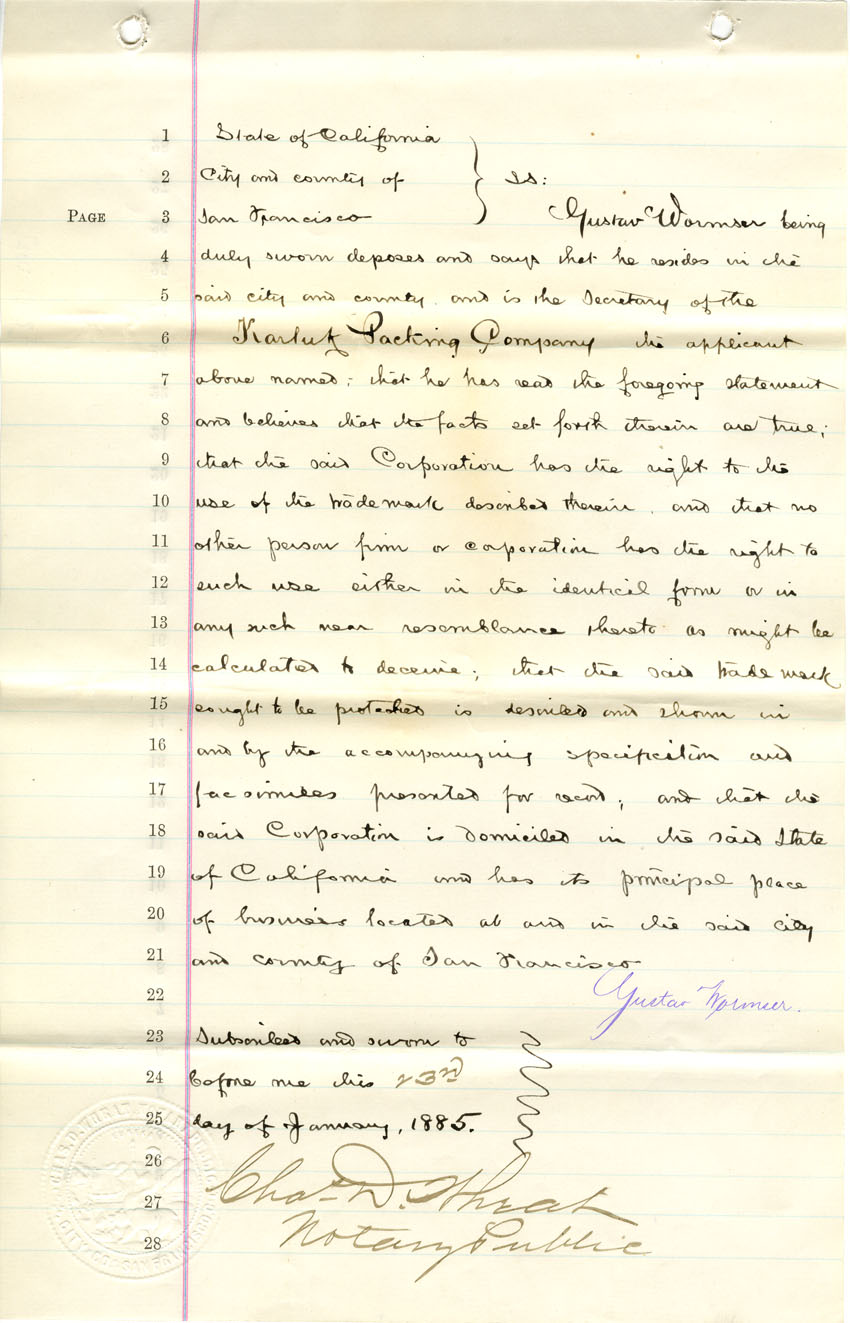 1 State of California
2 City and county of } SS:
PAGE 3 San Francisco Gustav Wormser being
4 duly sworn deposes and says that he resides in the
5 said city and county and is the Secretary of the
6 Karluk Packing Company the applicant
7 above named; that he has read the foregoing statement
8 and believes that the facts set forth therein are true;
9 that the said Corporation has the right to the
10 use of the trade mark described therein, and that no
11 other person firm or corporation has the right to
12 such use either in the identical form or in
13 any such near resemblance thereto as might be
14 calculated to deceive; that the said trade mark
15 sought to be protected is described and shown in
16 and by the accompanying specification and
17 facsimiles presented for record; and that the
18 said Corporation is domiciled in the said State
19 of California and has its principal place
20 of business located at and in the said city
21 and county of San Francisco
22 Gustav Wormser.
23 Subscribed and sworn to
24 before me this 23rd
25 day of January, 1885.
26
27 Chas. D. Wheat
28 Notary Public